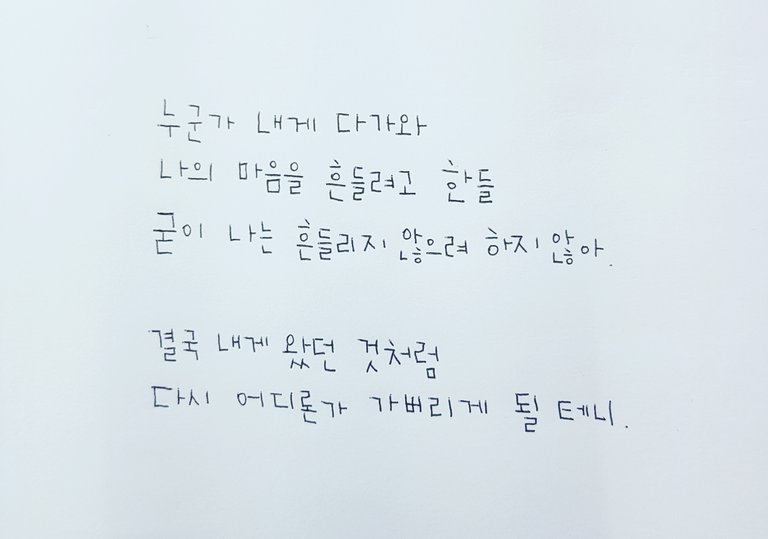 누군가 내게 다가와
나의 마음을 흔들려고 한들
굳이 나는 흔들리지 않으려 하지 않아.
결국 내게 왔던 것처럼
다시 어디론가 가버리게 될 테니.